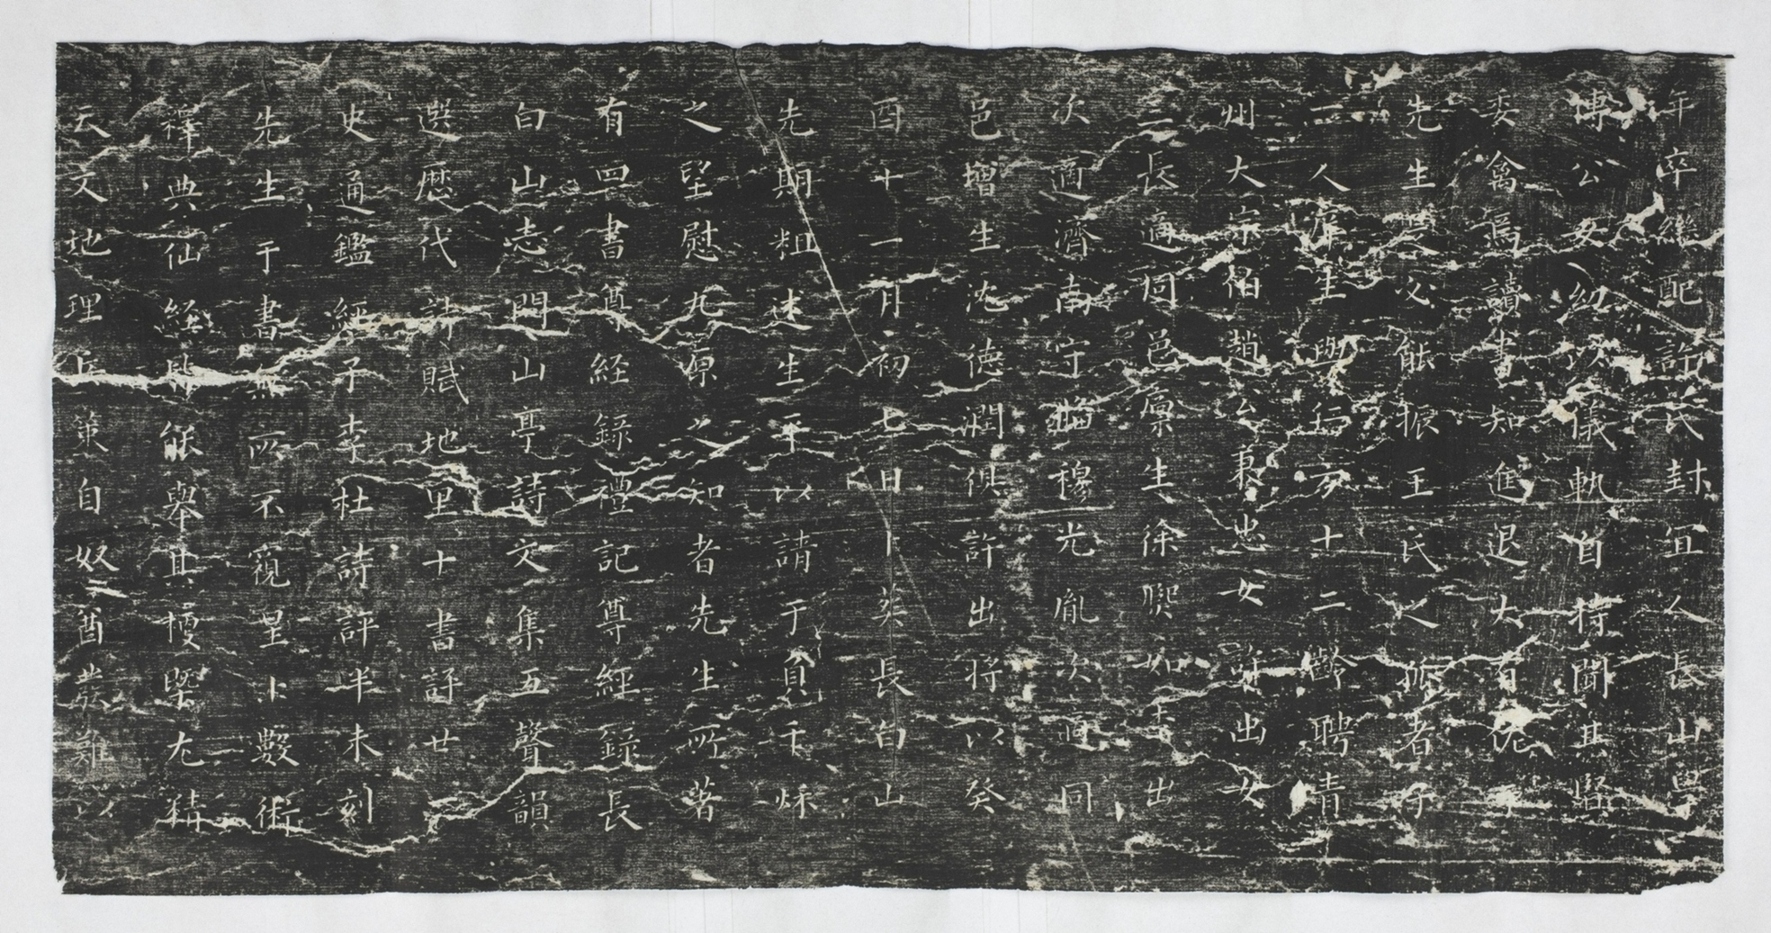 年卒繼配許氏封宜人長山學
博公女幼以儀軌自持聞其賢
委禽焉讀書知進退大有
先生是父能振王氏之孤者子
一人庠生與 方十二齡聘青
州大宗伯趙公秉忠女許出女
三長適同邑廩生徐 出
次適濟南守臨穆光胤次適同
邑增生沈德潤俱許出將以癸
酉十一月初七日卜葬長白山
先期粗述生平以請于 千秋
之望慰九原之知者先生所著
有四書尊經錄禮記尊經錄長
白山志閒山亭詩文集五聲韻
選歷代詩賦地里十書評廿一
史通鑑經子李杜詩評半未刻
先生于書無所不窺星卜數術
釋典仙經 能舉其梗槩尤精
天文地理兵策自奴酋發難以